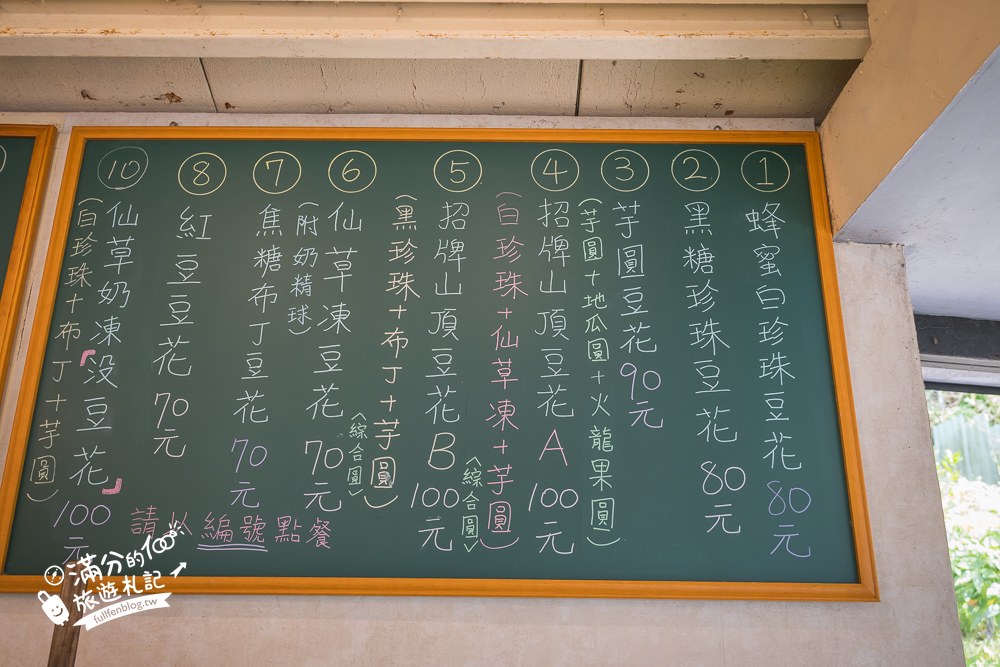 ①
蜂蜜白珍珠豆花 80元
②
黑糖珍珠豆花 80元
③
芋圓豆花 90元
(芋圓+地瓜圓+火龍果圓)
④
招牌山頂豆花A 100元
(白珍珠+仙草凍+芋圓)
<綜合圓>
⑤
招牌山頂豆花B 100元
(黑珍珠+布丁+芋圓)
<綜合圓>
⑥
仙草凍豆花 70元
(附奶精球)
⑦
焦糖布丁豆花 70元
⑧
紅豆豆花 70元
⑩
仙草奶凍「沒豆花」 100元
(白珍珠+布丁+芋圓)
請以編號點餐
滿分的100
旅遊札記
fullfenblog.tw